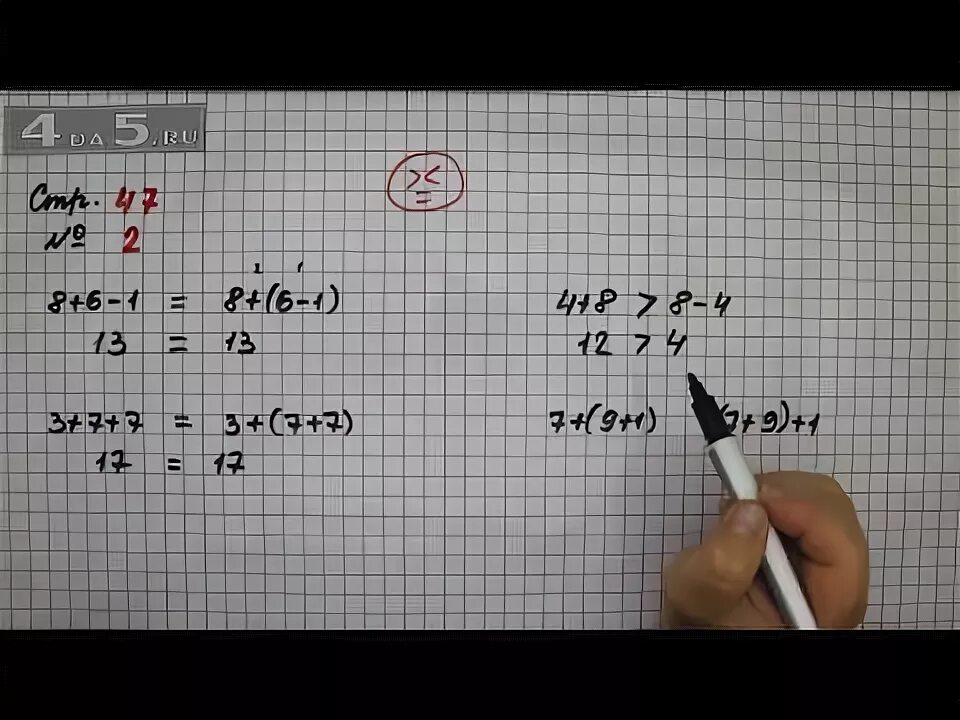 4DA5.RU
> <
=
Стр. 47
№ 2
2 1
8+6-1 = 8+(6-1)
13 = 13
4+8 > 8-4
12 > 4
3+7+7 = 3+(7+7)
17 = 17
7+(9+1) (7+9)+1